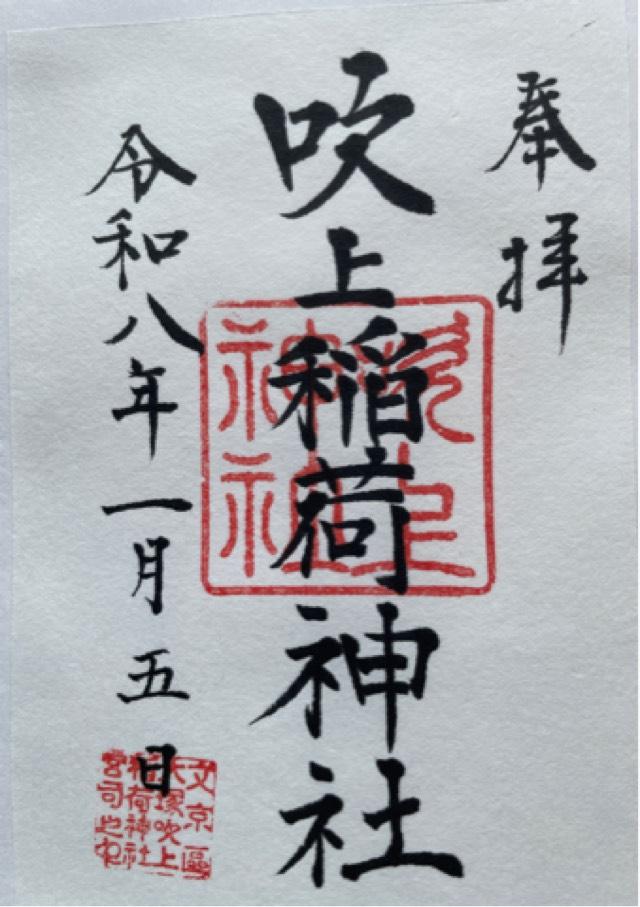 奉拝
吹上稲荷神社
令和八年一月五日
吹上
神社
文京區
大塚吹上
稲荷神社
宮司之印